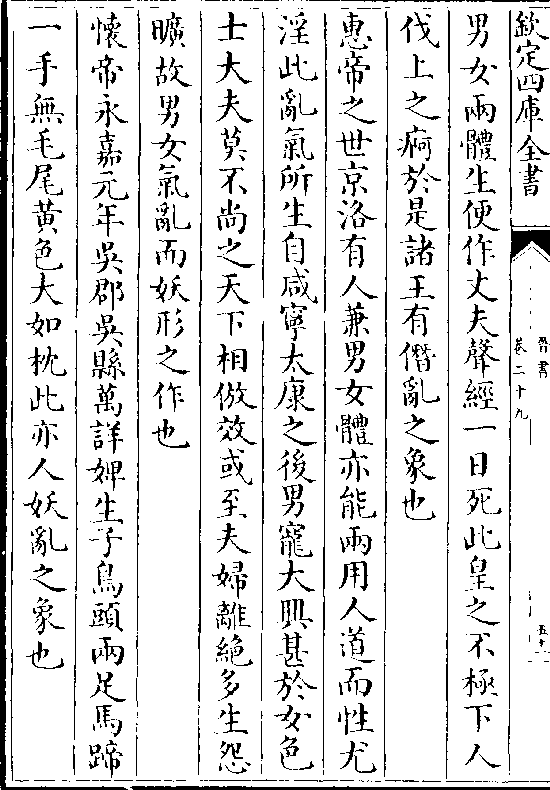 欽定四庫全書
晉書
卷二十九
五十
男女兩體生便作丈夫聲經一日死此皇之不極下人
伐上之痾於是諸王有僭亂之象也
惠帝之世京洛有人兼男女體亦能兩用人道而性尤
淫此亂氣所生自咸寧太康之後男寵大興甚於女色
士大夫莫不尚之天下相倣效或至夫婦離絕多生怨
曠故男女氣亂而妖形之作也
懷帝永嘉元年吳郡吳縣萬詳婢生子鳥頭兩足馬蹄
一手無毛尾黃色大如枕此亦人妖亂之象也